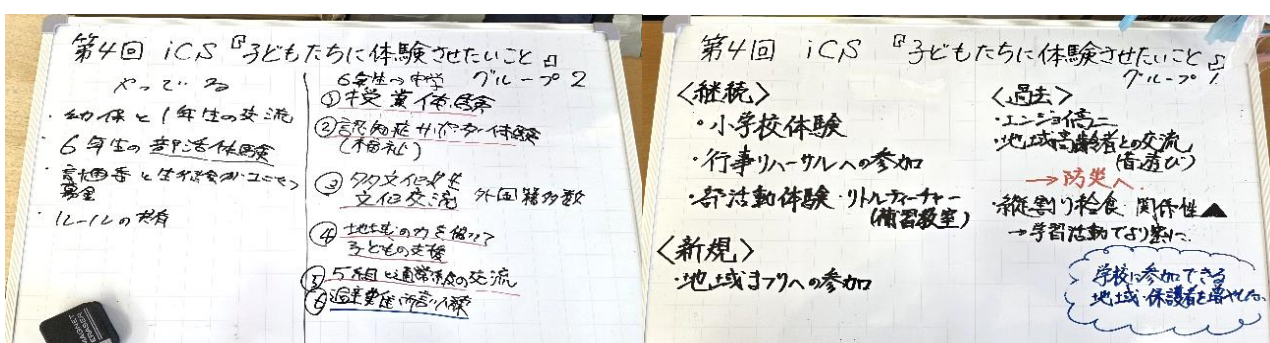 第4回 iCS 『子どもたちに体験させたいこと』
グループ2
やっている
・幼保と1年生の交流
6年生の部活体験
募金
・ルールの共有
6年生→中学
①授業体験
②認知症サポーター体験
(福祉)
③多文化共生
文化交流 外国籍多数
④地域の力を借りて
子どもの支援
⑤5組と通常級の交流
⑥避難訓練
第4回 iCS 『子どもたちに体験させたいこと』
グループ1
〈継続〉
・小学校体験
・行事リハーサルへの参加
・部活動体験・リトルティーチャー
(補習教室)
〈新規〉
・地域まつりへの参加
〈過去〉
・エンジョイ
・地域高齢者との交流
(昔遊び)
→防災へ
・縦割り給食 関係性▲
→学習活動でより密に
学校に参加できる
地域・保護者を増やしたい